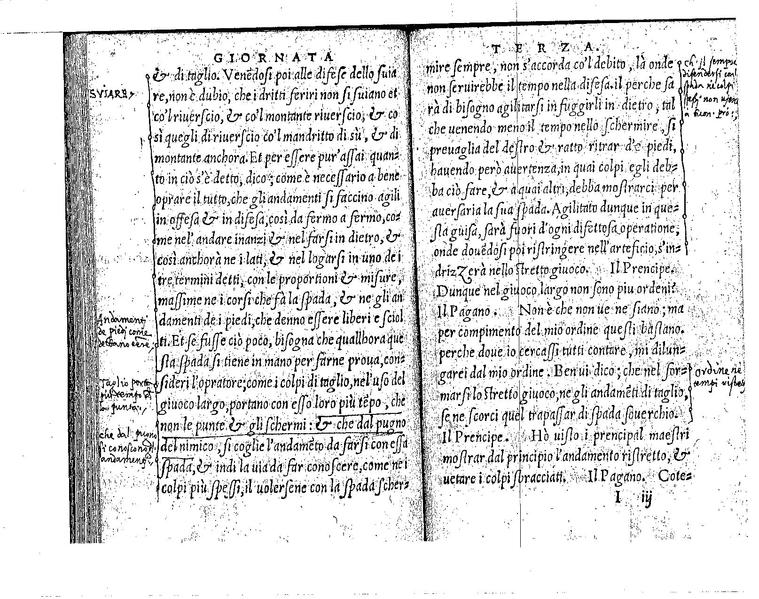 GIORNATA
& di taglio. Venēdosi poi alle difese dello suia
re, non è dubio, che i dritti feriri non si suiano et
co'l riuerscio, & co'l montante riuerscio; & co
sì quegli di riuerscio co'l mandritto di sù, & di
montante anchora. Et per essere pur' assai quan-
to in ciò s'è detto, dico; come è necessario a bene
oprare il tutto, che gli andamenti si faccino agili
in offesa & in difesa, così da fermo a fermo, co-
me nel'andare inanzi & nel farsi in dietro, &
così anchora ne i lati, & nel logarsi in uno de i
tre termini detti, con le proportioni & misure,
massime ne i corsi che fà la spada, & ne gli an
damenti de i piedi, che denno essere liberi e sciol
ti. Et se fusse ciò poco, bisogna che quall'hora que
sta spada si tiene in mano per farne proua, con-
sideri l'opratore; come i colpi di taglio, nel'uso del
giuoco largo, portano con esso loro più tēpo, che
non le punte & gli schermi: & che dal pugno
del nimico, si coglie l'andamēto da farsi con essa
spada, & indi la uia da far conoscere, come ne i
colpi più spessi, il uolersene con la spada scher-
SVIARE
Andamenti
de piedi come
debano essere
Taglio porta
più tempo di
la punta
che dal pugno
si conoscono gli
andamenti
TERZA.
mire sempre, non s'accorda co'l debito, là onde
non seruirebbe il tempo nella difesa. il perche sa
rà di bisogno agilitarsi in fuggirli in dietro; tal
che uenendo meno il tempo nello schermire, si
preuaglia del destro & ratto ritrar d'e piedi,
hauendo però auertenza, in quai colpi egli deb-
ba ciò fare, & a quai altri, debba mostrarci per
auersaria la sua spada. Agilitato dunque in que-
sta guisa, sarà fuori d'ogni difettosa operatione;
onde douēdosi poi ristringere nell'arteficio, s'in-
drizzerà nello stretto giuoco. Il Prencipe.
Dunque nel giuoco largo non sono piu ordeni?
Il Pagano. Non è che non ue ne siano; ma
per compimento del mio ordine questi bastano.
perche doue io cercassi tutti contare, mi dilun-
garei dal mio ordine. Ben ui dico; che nel for-
marsi lo stretto giuoco, ne gli andamēti di taglio,
se ne scorci quel trapassar di spada souerchio.
Il Prencipe. Hò uisto i prencipal maestri
mostrar dal principio l'andamento ristretto, &
uetare i colpi sbracciati. Il Pagano. Cote-
I iij
ch' il sempre
difendersi con la
spada
non
ordine ne
tempi